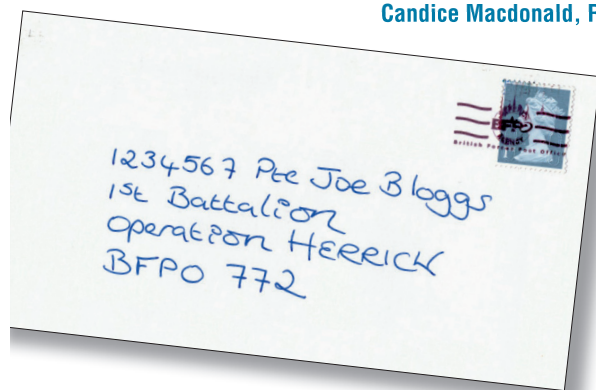 Candice Macdonald, F
BFPO
British Forces Post Office
1234567 Pte Joe Bloggs
1st Battalion
Operation HERRICK
BFPO 772